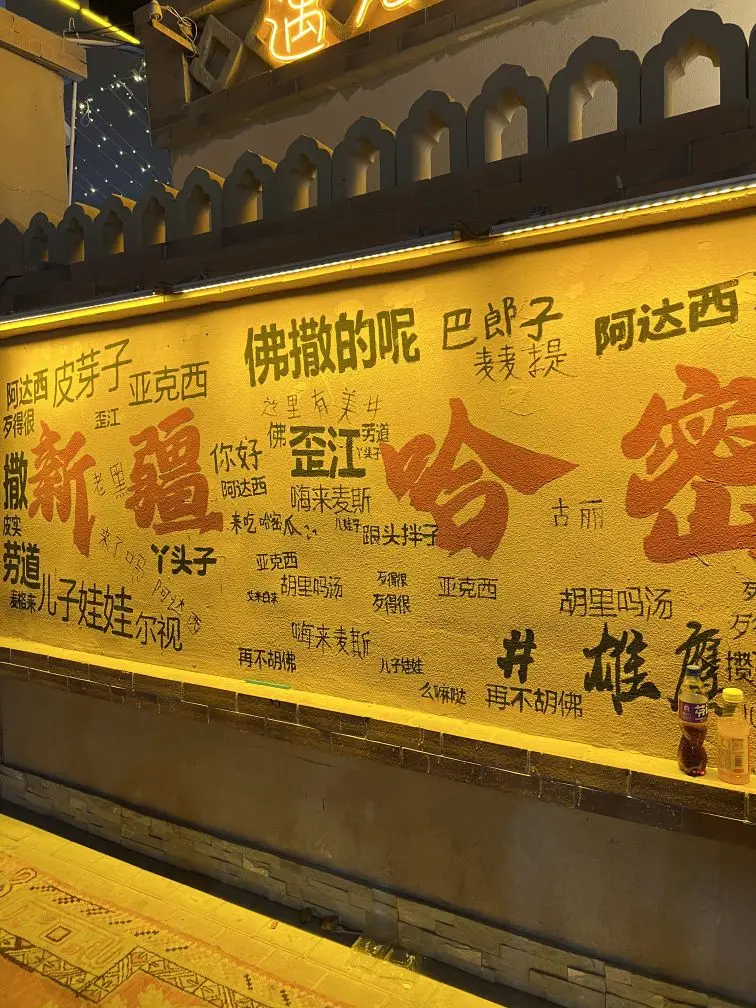 遇
佛撒的呢
巴郎子
阿达西
麦麦提
阿达西
皮芽子
亚克西
歹得很
歪江
这里有美女
佛
歪江
劳道
丫头子
新疆
哈密
老黑
你好
阿达西
撒
皮实
嗨来麦斯
古丽
来吃哈密瓜
儿娃子
跟头拌子
来了吗
丫头子
劳道
麦格来
儿子娃娃
尔视
亚克西
胡里吗汤
歹得很
歹得很
亚克西
胡里吗汤
嗨来麦斯
再不胡佛
儿子娃娃
么嘛哒
再不胡佛
#雄鹰